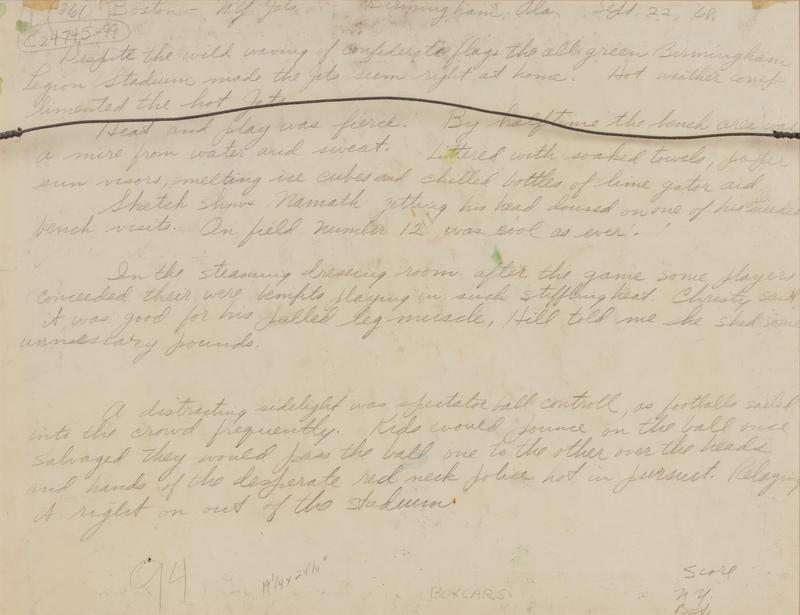 261 Boston - NY Jets Birmingham, Ala. Sept. 22, '68
C24745-99
Despite the wild waving of confederate flags the all green Birmingham
Legion Stadium made the Jets seem right at home. Hot weather comp
limented the hot Jets.
Heat and play was fierce. By halftime the bench area was
a mire from water and sweat. Littered with soaked towels, paper
sun visors, melting ice cubes and chilled bottles of lime gator aid
Sketch shows Namath getting his head doused on one of his
bench visits. On field Number 12 was cool as ever.
In the steaming dressing room after the game some players
conceded their were benifits playing in such stiffling heat. Christy said
it was good for his pulled leg muscle, Hill told me he shed some
unnessary pounds.
A distracting sidelight was spectator ball controll, as footballs sailed
into the crowd frequently. Kids would pounce on the ball once
salvaged they would pass the ball one to the other over the heads
and hands of the desperate red neck police hot in pursuit. Relaying
it right on out of the stadium.
94
19 1/4 x 24 1/4"
BOXCARS
Score
N.Y.
Bost.